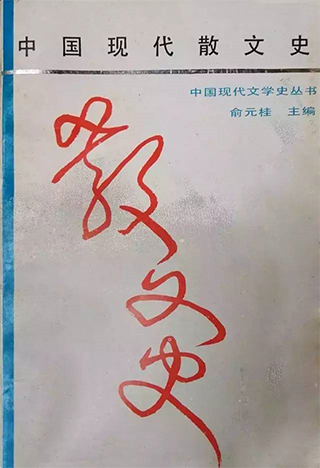 中国现代散文史
中国现代文学史丛书
俞元桂 主编
散
文
史